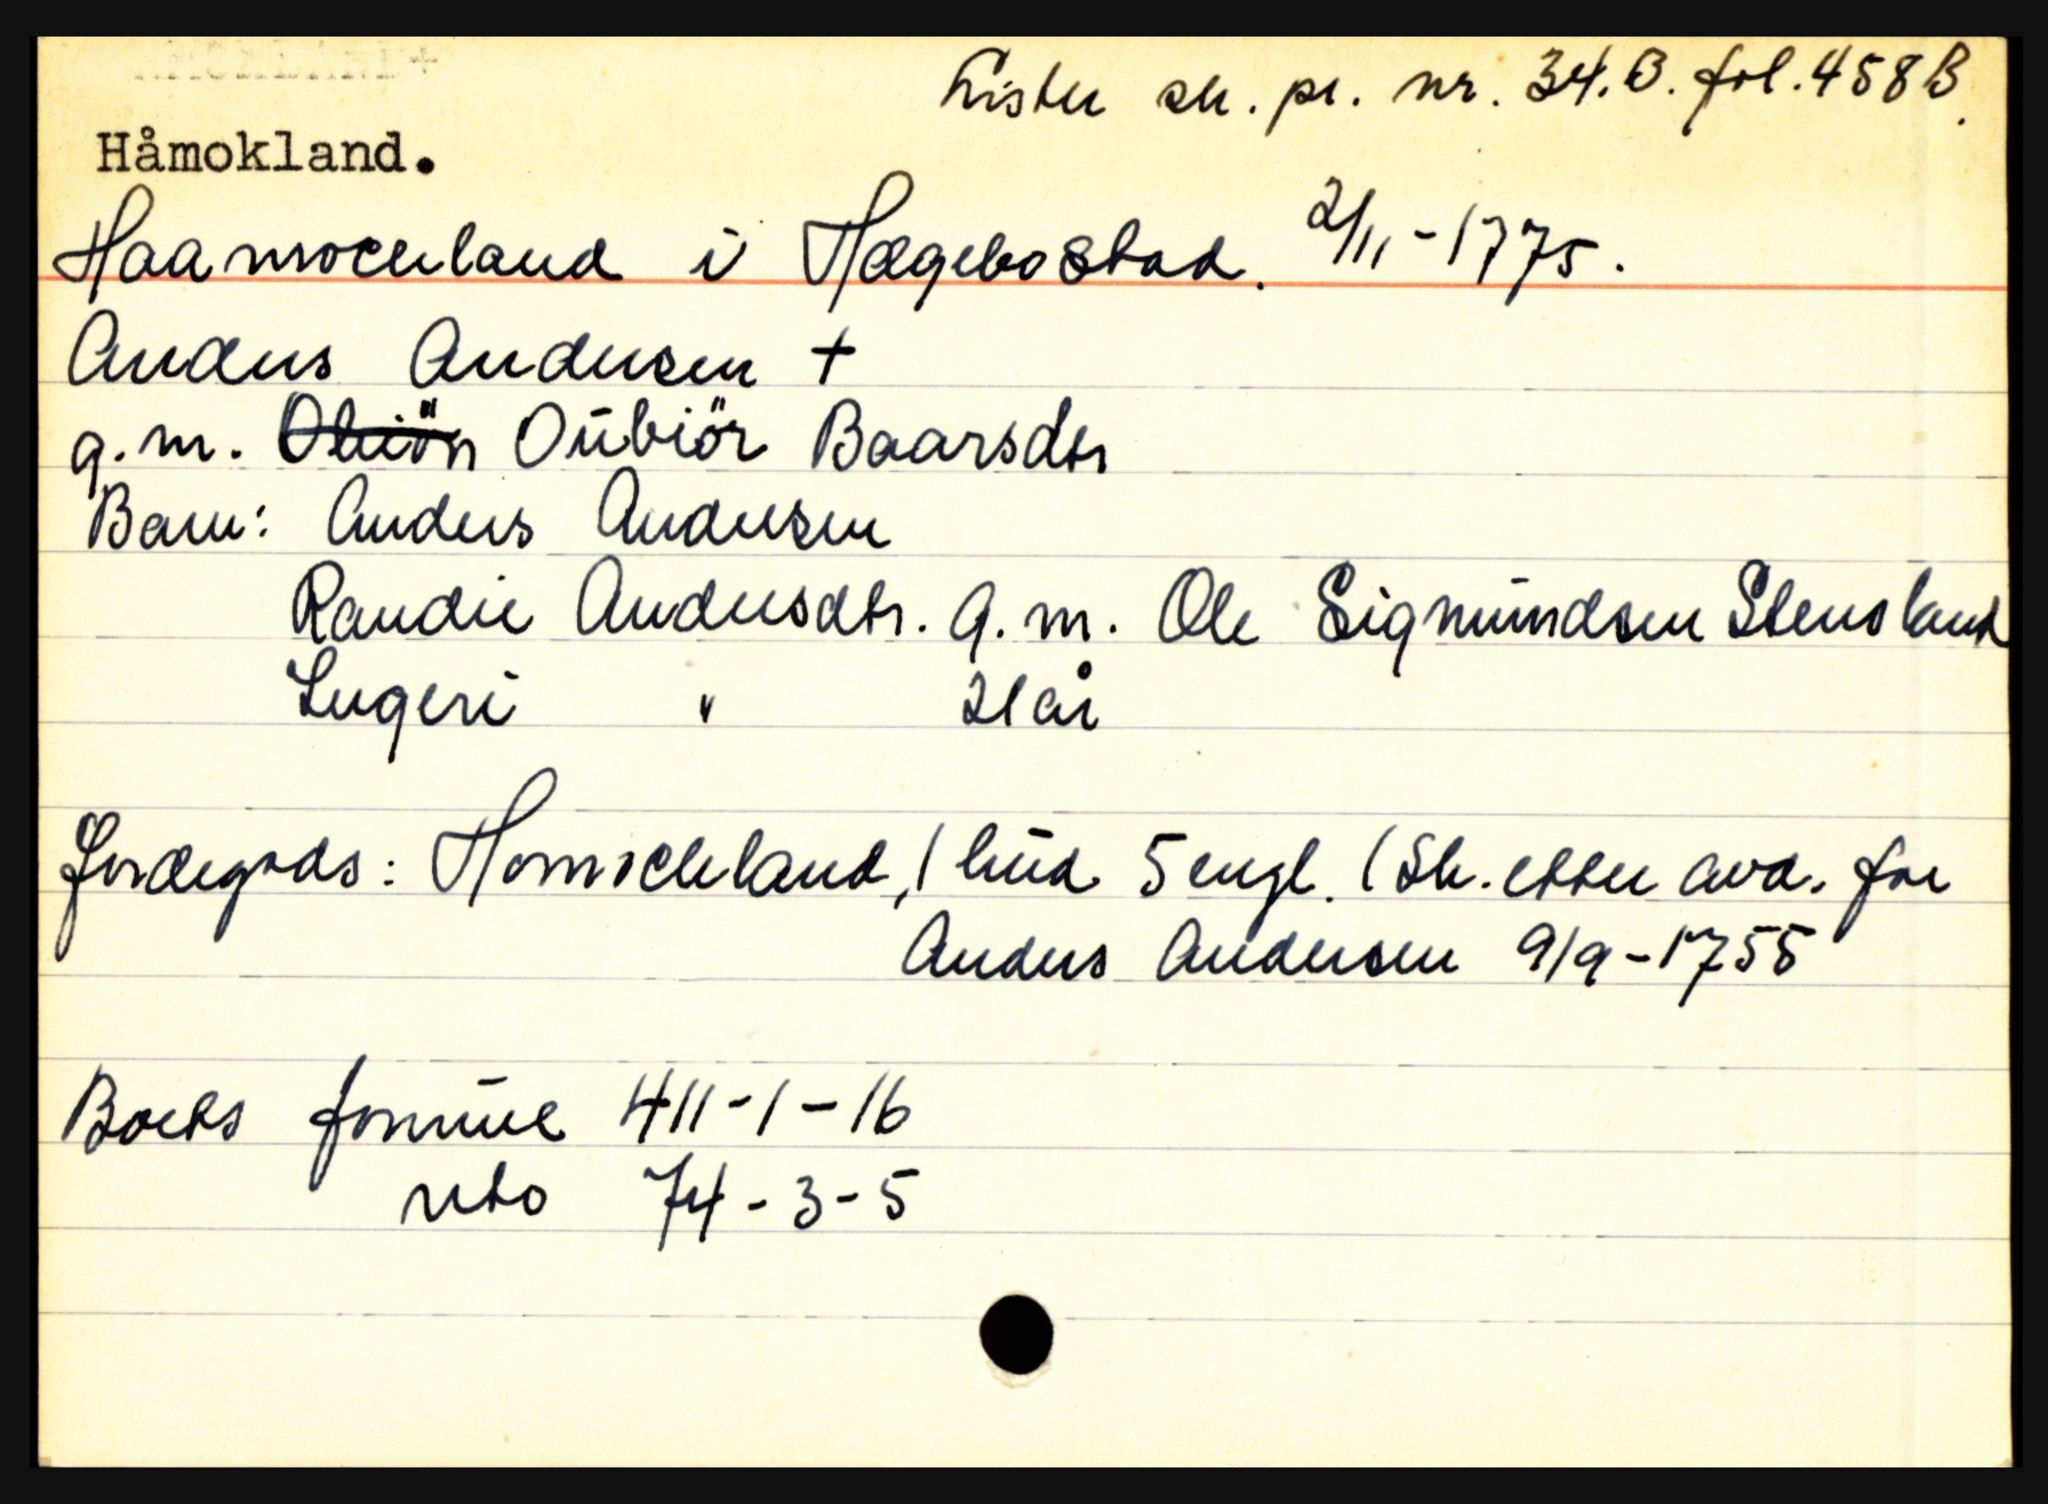 Lister sk. pr. nr. 34.B. fol. 458B.
Håmokland.
Haamockland i Hægebostad. 2/11-1775.
Anders Andersen +
g.m. Oubiör Baarsdtr
Barn: Anders Andersen
Randie Andersdtr. g.m. Ole Sigmundsen Stensland
Ingeri " 21 år
Jordegods: Homockland, 1 hud 5 engl. (Sk. etter avd. far
Anders Andersen 9/9-1755
Boets formue 411-1-16
nto 74-3-5